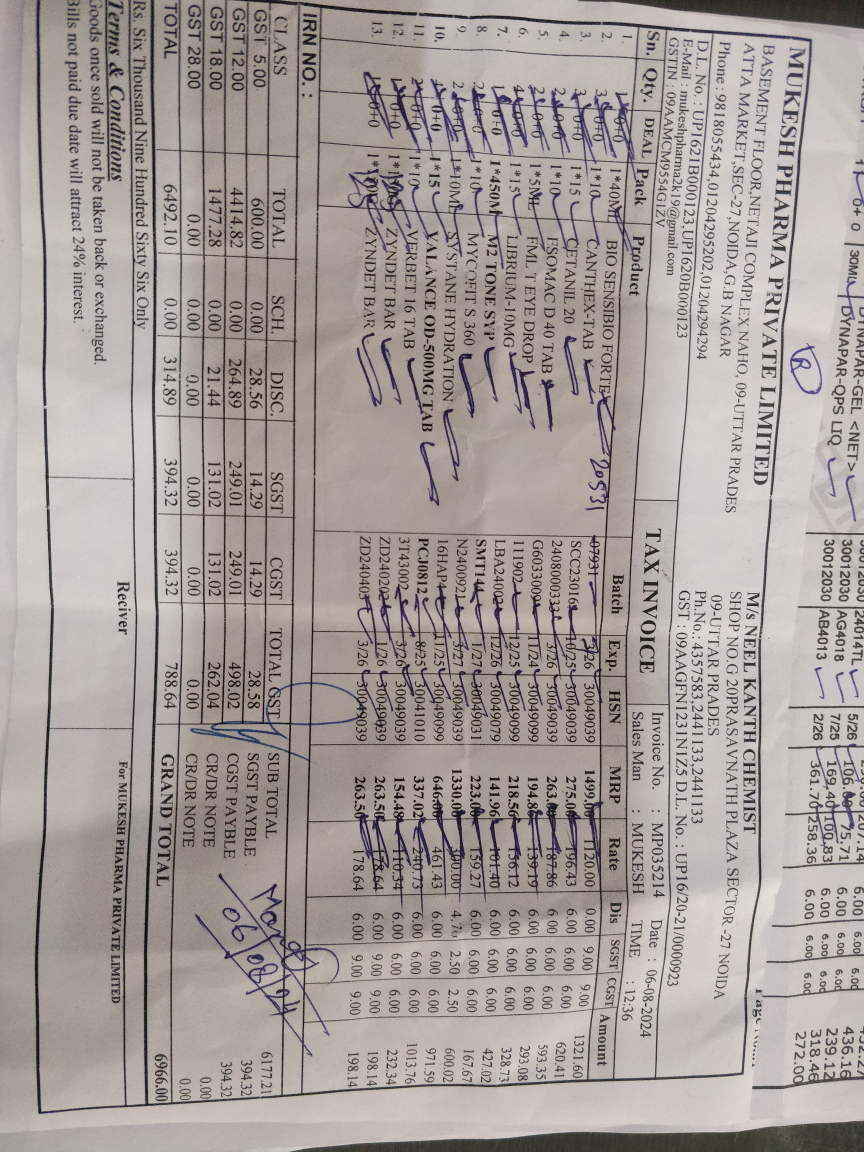 DYNAPAR-GEL <NET> 24014TL 5/26
11 0+0 30ML DYNAPAR-QPS LIQ 30012030 AG4018 7/25 169.40 100.83 6.00 6.00 6.00 239.12
30012030 AB4013 2/26 361.70 258.36 6.00 6.00 6.00 318.46
272.00
MUKESH PHARMA PRIVATE LIMITED
BASEMENT FLOOR,NETAJI COMPLEX NAHO, 09-UTTAR PRADES
ATTA MARKET,SEC-27,NOIDA,G.B NAGAR
Phone : 9818055434,01204295202,01204294294
D.L. No. : UP1621B000123,UP1620B000123
E-Mail : mukeshpharma2k19@gmail.com
GSTIN : 09AAMCM9554G1ZV
R
M/s NEEL KANTH CHEMIST
SHOP NO.G 20PRASAVNATH PLAZA SECTOR -27 NOIDA
09-UTTAR PRADES
Ph.No.: 4357583,2441133,2441133
GST : 09AAGFN1231N1Z5 D.L. No. : UP16/20-21/0000923
TAX INVOICE
Invoice No. : MP035214 Date : 06-08-2024
Sales Man : MUKESH TIME : 12:36
Sn. Qty. DEAL Pack Product Batch Exp. HSN MRP Rate Dis SGST CGST Amount
1. 0+0 1*40ML BIO SENSIBIO FORTE 20931 07931 3/26 30049039 1499.00 1120.00 0.00 9.00 9.00 1321.60
2. 3 0+0 1*10 CANTHEX-TAB SCC23016 10/25 30049039 275.00 196.43 6.00 6.00 6.00 620.41
3. 0+0 1*15 CETANIL 20 2408000332 3/26 30049039 263. 187.86 6.00 6.00 6.00 593.35
4. 2 0+0 1*10 ESOMAC D 40 TAB G6033000 11/24 30049099 194.8 139.19 6.00 6.00 6.00 293.08
5. 2 0+0 1*5ML FML T EYE DROP 111902 12/25 30049099 218.56 156.12 6.00 6.00 6.00 328.73
6. 0+0 1*15 LIBRIUM-10MG LBA24002 12/26 30049079 141.96 101.40 6.00 6.00 6.00 427.02
7. 1 0+0 1*450M M2 TONE SYP SMT14 1/27 30049031 223. 159.27 6.00 6.00 6.00 167.67
8. 2 0+0 1*10 MYCOFIT S 360 N2400921 3/27 30049039 1330.00 300.00 4.76 2.50 2.50 600.02
9. 2 0+0 1*10ML SYSTANE HYDRATION 16HAP4 11/25 30049099 646. 461.43 6.00 6.00 6.00 971.59
10. 0+0 1*15 VALANCE OD-500MG TAB PCJ0812 8/25 30041010 337.02 240.73 6.00 6.00 6.00 1013.76
11. 2 0+0 1*10 VERBET 16 TAB 3T43007 3/26 30049039 154.48 110.34 6.00 6.00 6.00 232.34
12. 0+0 ZYNDET BAR ZD240202 1/26 30049039 263.50 178.64 6.00 9.00 9.00 198.14
13. 0+0 ZYNDET BAR ZD240405 3/26 30049039 263.50 178.64 6.00 9.00 9.00 198.14
IRN NO. :
CLASS TOTAL SCH. DISC. SGST CGST TOTAL GST
GST 5.00 600.00 0.00 28.56 14.29 14.29 28.58
GST 12.00 4414.82 0.00 264.89 249.01 249.01 498.02
GST 18.00 1477.28 0.00 21.44 131.02 131.02 262.04
GST 28.00 0.00 0.00 0.00 0.00 0.00
TOTAL 6492.10 0.00 314.89 394.32 394.32 788.64
SUB TOTAL 6177.21
SGST PAYBLE 394.32
CGST PAYBLE 394.32
CR/DR NOTE 0.00
CR/DR NOTE 0.00
GRAND TOTAL 6966.00
06/08/24
Rs. Six Thousand Nine Hundred Sixty Six Only
Terms & Conditions
Goods once sold will not be taken back or exchanged.
Bills not paid due date will attract 24% interest.
Reciver
For MUKESH PHARMA PRIVATE LIMITED